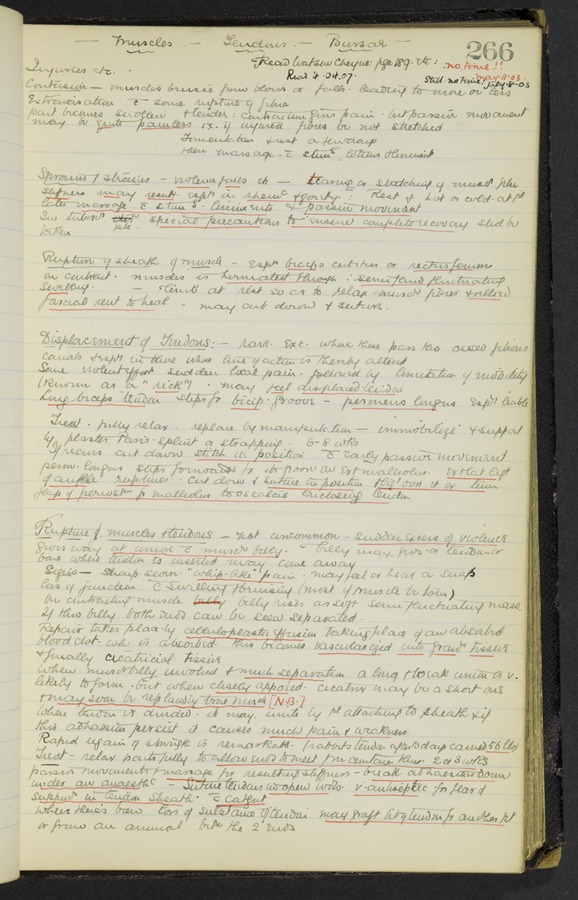 266
— Muscles — Tendons — Bursae —
Read Watson Cheyne pge 189. etc: no time!!
Read 24.07. Still no time! July 5-03
Injuries etc.
Contusion — muscles bruise from blows or falls. leading to more or less
Extravasation c some rupture of fibre
part becomes swollen & tender: contraction gives pain - but passive movement
may be quite painless i.e. if injured fibres be not stretched
Fomentation & rest a few days
then massage c stimg lotion & liniment
Sprains & strains — violence falls etc — tearing or stretching of muscr fibre
Stiffness may result espy in rheumc & gouty: Rest & hot or cold at 1st
later massage c stimg. liniments & passive movement
special precautions to ensure complete recovery shd be
taken
Rupture of sheath of muscle — Espy biceps cubitus or rectus femoris
on contract. muscles is herniated through: semi fluid fluctuating
Swelling. — limb at rest so as to relax muscr fibres & allow
fascial rent to heal — may cut down & suture.
Displacement of Tendons: — rare. Exc. where these pass thro osseo fibrous
canals & espy in those where line of action is thereby altered
Some violent effort sudden local pain. followed by limitation of mobility
(known as a "rick") . may feel displaced tendon
Long biceps tendon slips fr bicip. groove — peroneus longus espy liable
Treat. fully relax. replace by manipulation — immobilize & support
by plaster Paris splint or strapping. 6-8 wks
If recurs cut down stitch in position c early passive movement
peron. longus slips forwards fr its groove in ext malleolus. or that ligt
of ankle ruptures. cut down & suture in position
flap of periost fr malleolus to os calcis enclosing tendon
Rupture of muscles & tendons — not uncommon — sudden excess of violence
gives way at union c muscr belly. — belly may give or tendon or
bone where tendon is inserted may come away
Signs — sharp severe "whip-like" pain. may feel or hear a snap
loss of function c swelling & bruising (most if muscle be torn)
On contracting muscle belly rises as soft semi fluctuating mass.
If thro belly both ends can be seen separated.
Repair takes place by celluloplastic effusion taking place if any absorbed
blood clot. wh is absorbed. This becomes vascularized into grann tissue
& finally cicatricial tissue
When muscr belly involved & much separation a long & weak union is v.
likely to form. but when closely apposed. cicatrix may be a short one
& may soon be replaced by true muscle [N.B.]
When tendon is divided. it may unite by 1st attaching to sheath & if
this adhesion persist it causes much pain & weakness
Rapid regain of strength is remarkable. (rabbits tendon after 10 days carried 56 lbs)
Treat — relax parts fully to allow ends to meet fr 2 or 3 wks
passive movements & massage for resulting stiffness — break adhesions down
under an anaesthc — Suture tendons in open wds v. antiseptic for fear of
Suppurn in tendon sheath. c catgut
Where there's been loss of substance of tendon may graft bit of tendon fr another pt
or from an animal betn the 2 ends